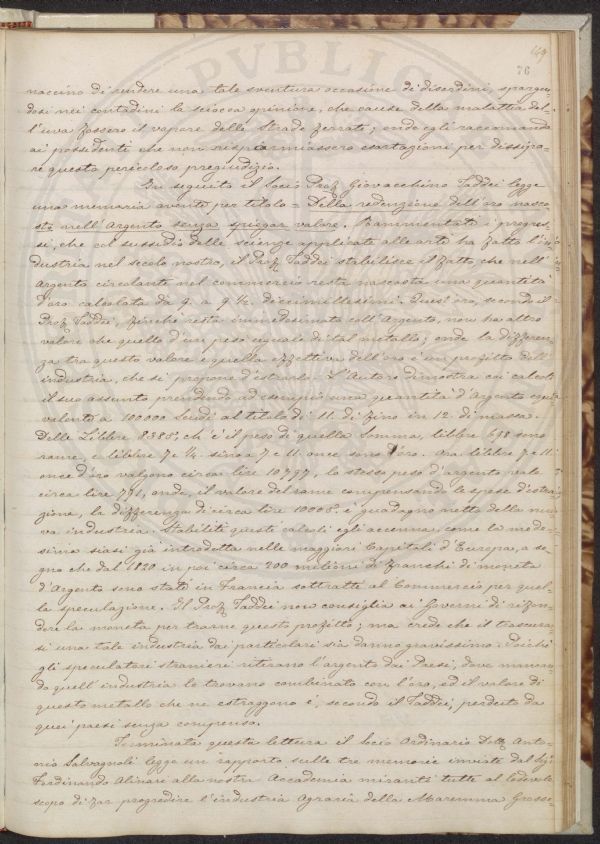 149
76
naccino di rendere una tale sventura occasione di disordini, spargen-
dosi nei contadini la sciocca opinione, che causa della malattia del-
l'uva fossero il vapore delle Strade ferrate; onde egli raccomanda
ai possidenti che non risparmiassero esortazioni per dissipa-
re questo pericoloso pregiudizio.
In seguito il Socio Prof. Giovacchino Taddei legge
una memoria avente per titolo = Della redenzione dell'oro nasco-
sto nell'Argento senza spiegar valore. Rammentati i progres-
si, che col sussidio delle scienze applicate alle arti ha fatto l'in-
dustria nel secolo nostro, il Prof. Taddei stabilisce il fatto, che nell'
Argento circolante nel commercio resta nascosta una quantità
d'oro calcolata da 9. a 9 ½ diecimillesimi. Quest'oro, secondo il
Prof. Taddei, finchè resta immedesimato coll'Argento, non ha altro
valore che quello d'un peso eguale di tal metallo; onde la differen-
za tra questo valore e quella effettiva dell'oro è un profitto dell'
industria, che si propone d'estrarlo. L'Autore dimostra coi calcoli
il suo assunto prendendo ad esempio una quantità d'Argento equi-
valente a 100000 Scudi al titolo di 11. di fino in 12. di massa.
Delle Libbre 8385, ch'è il peso di quella somma, libbre 698 sono
rame, e libbre 7 e ¼ sino a 7 e 11 once sono l'oro. Ora libbre 7 e 11
once d'oro valgono circa lire 10797, lo stesso peso d'argento vale
circa lire 791, onde, il valore del rame compensando le spese d'estra-
zione, la differenza di circa lire 10006. è guadagno netto della nuo-
va industria. Stabiliti questi calcoli egli accenna, come la mede-
sima siasi già introdotta nelle maggiori Capitali d'Europa, a se-
gno che dal 1820 in poi circa 200 milioni di franchi di moneta
d'Argento sono stati in Francia sottratti al Commercio per quel-
la speculazione. Il Prof. Taddei non consiglia ai Governi di rifon-
dere la moneta per trarne questo profitto; ma crede che il trascurar-
si una tale industria dai particolari sia danno gravissimo. Poichè
gli speculatori stranieri ritirano l'argento dai Paesi, dove mancan-
do quell'industria lo trovano combinato con l'oro, ed il valore di
questo metallo che ne estraggono è, secondo il Taddei, perduto da
quei paesi senza compenso.
Terminata questa lettura il Socio Ordinario Dott. Anto-
nio Salvagnoli legge un rapporto sulle tre memorie inviate dal Sig.
Ferdinando Alinari alla nostra Accademia miranti tutte al lodevole
scopo di far progredire l'industria Agraria della Maremma Grosse-